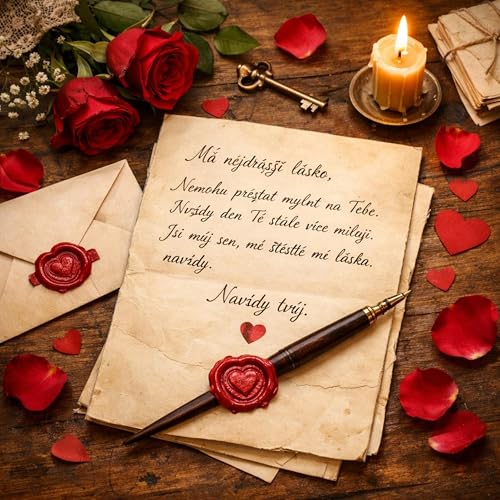 Má nejdrąšşí lásko,
Nemohu prėstat mylnt na Tebe.
Nvzídy den Tě stále více miluji.
Jsi můj sen, mé štéstté mé láska.
navídy.
Navídy tvůj.